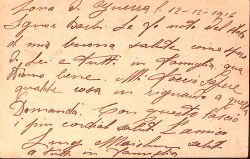 Zona di Guerra l. 12-12-1916
Signor Barbi. Le fo noto del stato
di mia buona salute come spero
di Lei e tutti in famiglia que
stiano bene. Mi faccia sapere
qualche cosa in riguardo a questa
Domanda. Con questo lascio
i più cordiali saluti l'amico
Luigi saluti
a tutti in famiglia